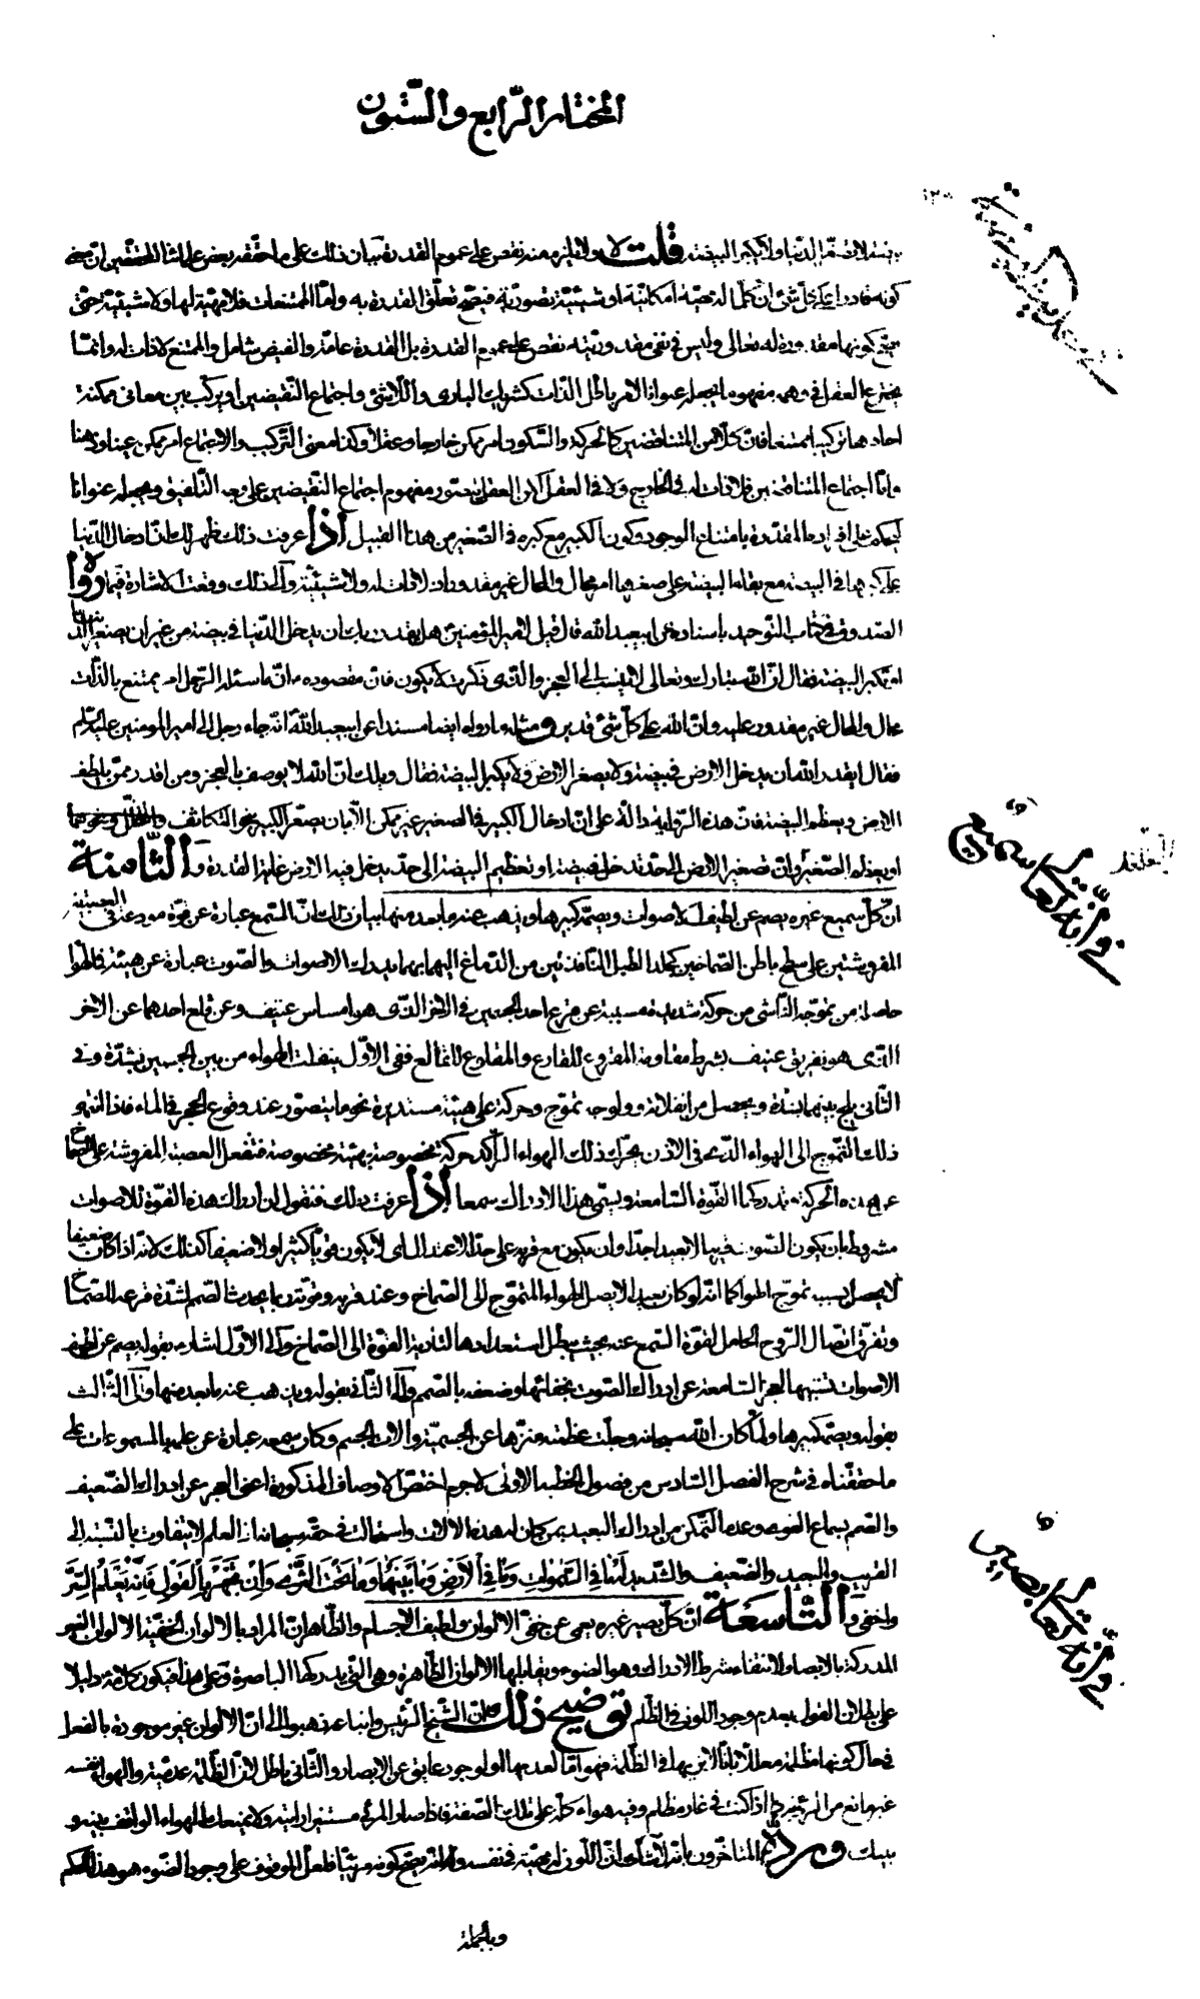 المختار الرّابع والستّون
بيضة لا تصغّر الدّنيا ولا تكبر البيضة قلت لا ولا يلزم منه نقص على عموم القدرة بيان ذلك على ما حقّقه بعض علمائنا المحقّقين انّ معنى
كونه قادرا على كلّ شئ انّ كلّ ما له مهيّة امكانيّة او شيئيّة تصوّريّة فيصحّ تعلّق القدرة به وامّا الممتنعات فلا مهيّة لها ولا شيئيّة حتّى
يصحّ كونها مقدورة له تعالى وليس في نفى مقدوريّته نقص على عموم القدرة بل القدرة عامّة والفيض شامل والممتنع لا ذات له وانّما
يخترع العقل في وهمه مفهوما يجعله عنوانا لامر باطل الذّات كشريك البارى واللّاشئ واجتماع النّقيضين او يركّب بين معانى ممكنة
احادها تركيبا ممتنعا فانّ كلّا من المتناقضين كالحركة والسّكون امر ممكن خارجا وعقلا وكذا معنى التّركيب والاجتماع امر ممكن عينا وذهنا
وامّا اجتماع المتناقضين فلا ذات له في الخارج ولا في العقل لكن العقل يتصوّر مفهوم اجتماع النّقيضين على وجه التّلفيق ويجعله عنوانا
ليحكم على افراده المقدّرة بامتناع الوجود وكون الكبير مع كبره في الصّغير من هذا القبيل إذا عرفت ذلك ظهر لك انّ ادخال الدّنيا
على كبرها في البيضة مع بقاء البيضة على صغرها امر محال والمحال غير مقدور اذ لا ذات له ولا شيئيّة والى ذلك وقعت الاشارة فيما رواه
الصّدوق في كتاب التّوحيد باسناده عن ابيعبد الله قال قيل لامير المؤمنين هل يقدر ربّك ان يدخل الدّنيا في بيضة من غير ان يصغر الدّنيا
او يكبر البيضة فقال انّ الله تبارك وتعالى لا ينسب الى العجز والّذى ذكرت لا يكون فانّ مقصوده انّ ما سئله الرّجل امر ممتنع بالذّات
محال والمحال غير مقدور عليه وانّ الله على كلّ شئ قدير ومثله ما رواه ايضا مسندا عن ابيعبد الله انّه جاء رجل الى امير المؤمنين عليه السّلم
فقال ايقدر الله ان يدخل الارض في بيضة ولا يصغر الارض ولا يكبر البيضة فقال ويلك انّ الله لا يوصف بالعجز ومن اقدر ممّن يلطف
الارض ويعظم البيضة فانّ هذه الرّواية دالّة على انّ ادخال الكبير في الصغير غير ممكن الّا بان يصغّر الكبير بنحو التّكاثف والتّخلخل ونحوهما
وانّ تصغير الارض الى حدّ تدخل في بيضة او تعظيم البيضة الى حدّ يدخل فيه الارض غاية القدرة والثّامنة
انّ كلّ سميع غيره يصمّ عن لطيف الاصوات ويصمّه كبيرها ويذهب عنه ما بعد منها بيان ذلك انّ السّمع عبارة عن قوّة مودعة في العصبتين
المفروشتين على سطح باطن الصّماخين كجلد الطّبل النّافذتين من الدّماغ اليهما بهما يدرك الاصوات والصّوت عبارة عن هيئة في الهواء
حاصلة من تموّجه النّاشى من حركة شديدة مسببة عن قرع احد الجسمين في الاخر الّذى هو امساس عنيف وعن قلع احدهما عن الاخر
الّذى هو تفريق عنيف بشرط مقاومة المقروع للقارع والمقلوع للقالع ففى الاوّل ينفلت الهواء من بين الجسمين بشدّة وفى
الثّانى يلج بينهما بشدّة ويحصل من انفلاته وولوجه تموّج وحركة على هيئة مستديرة نحو ما يتصوّر عند وقوع الحجر في الماء فاذا انتهى
ذلك التّموّج الى الهواء الّذى في الاذن تحرّك ذلك الهواء الرّاكد حركة مخصوصة بهيئة مخصوصة فتنفعل العصبة المفروشة على الصّماخ
عن هذه الحركة وتدركها القوّة السّامعة ويسمّى هذا الادراك سمعا إذا عرفت ذلك فنقول ان ادراك هذه القوّة للاصوات
مشروط بان يكون الصّوت قريبا لا بعيدا جدّا وان يكون مع قربه على حدّ الاعتدال اى لا يكون قويّا كثيرا ولا ضعيفا كذلك لانّه اذا كان ضعيفا
لا يحصل بسببه تموّج الهواء كما انّه لو كان بعيدا لا يصل الهواء المتموّج الى الصّماخ وعند قربه وقوّته ربما يحدث الصّمم لشدّة قرعه الصّماخ
وتفرّق اتّصال الرّوح الحامل لقوّة السّمع عنه بحيث يبطل استعدادها لتأدية القوّة الى الصّماخ والى الاوّل اشار بقوله يصمّ عن لطيف
الاصوات تشبيها لعجز السّامعة عن ادراك الصّوت بخفائها وضعفه بالصّمم والى الثّانى بقوله ويذهب عنه ما بعد منها والى الثّالث
بقوله ويصمّه كبيرها ولمّا كان الله سبحانه وجلّت عظمته منزّها عن الجسميّة والات الجسم وكان سمعه عبارة عن علمه بالمسموعات على
ما حقّقناه في شرح الفصل السّادس من فصول الخطبة الاولى لا جرم اختصّ الاوصاف المذكورة اعنى العجز عن ادراك الضّعيف
والصّمم بسماع القوى وعدم التّمكّن من ادراك البعيد بمن كان له هذه الالات واستحالت في حقّه سبحانه اذ العلم لا يتفاوت بالنّسبة الى
القريب والبعيد والضّعيف والشّديد لَهُ ما فِي السَّمواتِ وَما فِي الْأَرْضِ وَما بَيْنَهُما وَما تَحْتَ الثَّرى وَاِنْ تَجْهَرْ بِالْقَوْلِ فَاِنَّهُ يَعْلَمُ السِّرَّ
واخفى والتّاسعة انّ كلّ بصير غيره يعمى عن خفىّ الالوان ولطيف الاجسام والظّاهر انّ المراد بالالوان الخفيّة الالوان الغير
المدركة بالابصار لانتفاء شرط الادراك وهو الضوء ويقابلها الالوان الظّاهرة وهى الّتى يدركها الباصرة وعلى هذا فيكون كلامه دليلا
على بطلان القول بعدم وجود اللّون في الظّلم توضيح ذلك انّ الشّيخ الرّئيس واتباعه ذهبوا الى انّ الالوان غير موجودة بالفعل
في حال كونها مظلمة معلّلا بانّا لا نريها في الظّلمة فهو امّا لعدمها او لوجود عايق عن الابصار والثّانى باطل لانّ الظّلمة عدميّة والهواء نفسه
غير مانع من الرّؤية كما اذا كنت في غار مظلم وفيه هواء كلّه على تلك الصّفة فاذا صار المرئى مستنيرا رايته ولا يمنعك الهواء الواقف بينه و
بينك وردّه المتاخّرون بانّه لا شكّ انّ اللّون له مهيّة في نفسه وانّه يصحّ كونه مرئيّا فلعلّ الموقوف على وجود الضّوء هو هذا الحكم
وبالجملة
في انّه تعالى سميع
في انّه تعالى بصير